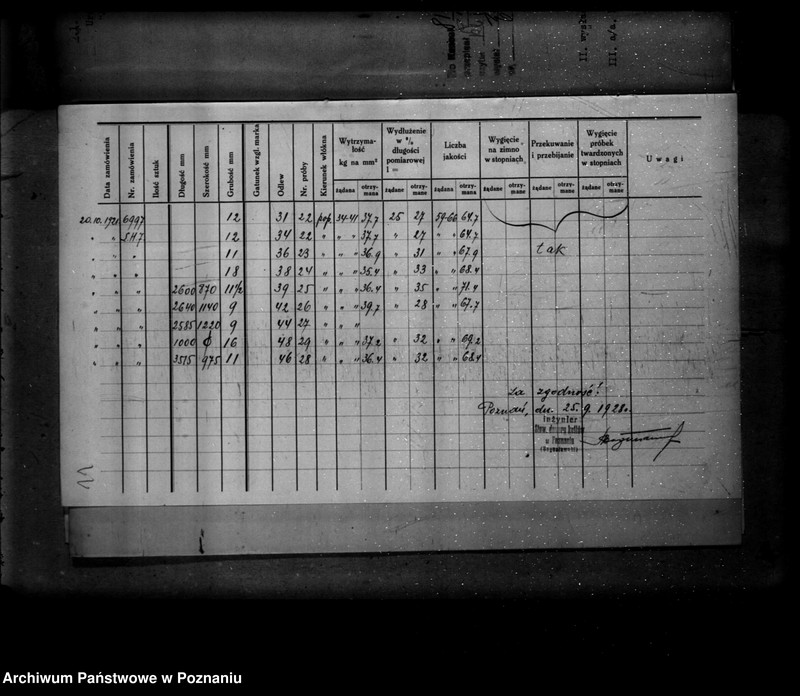 II. wysył
III. a/a.
Data zamówienia | Nr. zamówienia | Ilość sztuk | Długość mm | Szerokość mm | Grubość mm | Gatunek wzgl. marka | Odlew | Nr. próby | Kierunek włókna | Wytrzymałość kg na mm² | Wydłużenie w % długości pomiarowej l = | Liczba jakości | Wygięcie na zimno w stopniach | Przekuwanie i przebijanie | Wygięcie próbek twardzonych w stopniach | Uwagi
żądane | otrzymane | żądane | otrzymane | żądane | otrzymane | żądane | otrzymane | żądane | otrzymane | żądane | otrzymane
20.10.1921 6997 12 31 22 pop. 34-41 37,7 25 27 59-66 64.7
" " S.H.7 12 34 22 " " " 37,7 " 27 " " 64.7
" " " 11 36 23 " " " 36.9 " 31 " " 67.9 tak
" " " 18 38 24 " " " 35.4 " 33 " " 68.4
" " " 2600 870 11½ 39 25 " " " 36.4 " 35 " " 71.4
" " " 2640 1140 9 42 26 " " " 39,7 " 28 " " 67.7
" " " 2585 1220 9 44 27 " " "
" " " 1000 ϕ 16 48 29 " " " 37.2 " 32 " " 69.2
" " " 3515 975 11 46 28 " " " 36.4 " 32 " " 68.4
Za zgodność!
Poznań, dn. 25. 9. 1928r.
Inżynier
Stow. dozoru kotłów
w Poznaniu
11
Archiwum Państwowe w Poznaniu